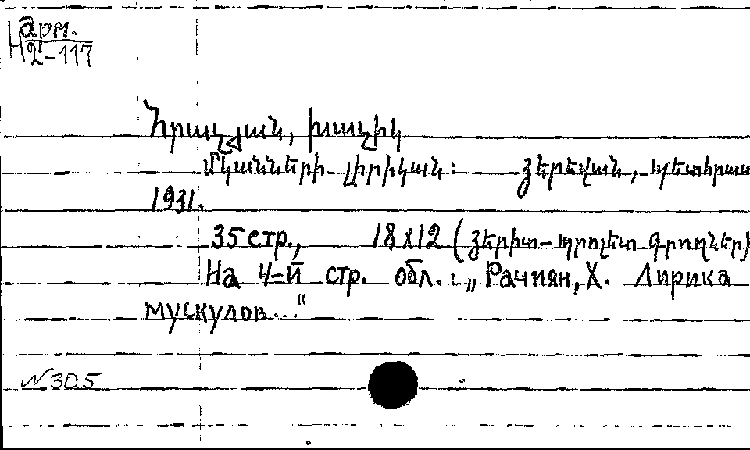 Арм.
Н 2-117
Հրաչյան, Խաչիկ
Մկանների լիրիկան։ Յերեվան, Պետհրատ
1931.
35 стр., 18x12 (Յերիտ-պրոլետ գրողներ)
На 4-й стр. обл.: „Рачиян, Х. Лирика
мускулов..."
№ 305